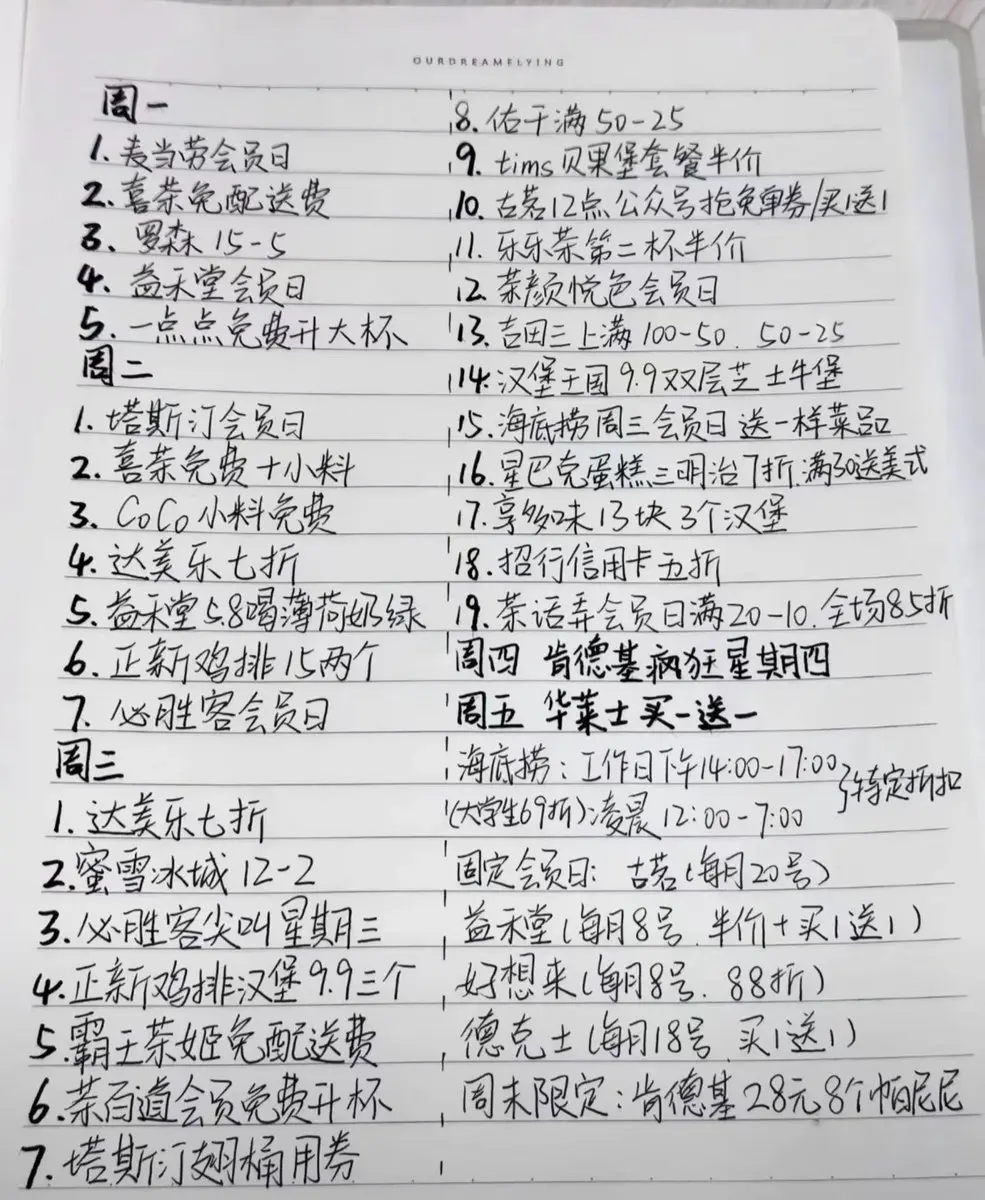 OURDREAMFLYING
周一
1. 麦当劳会员日
2. 喜茶免配送费
3. 罗森 15-5
4. 益禾堂会员日
5. 一点点免费升大杯
周二
1. 塔斯汀会员日
2. 喜茶免费+小料
3. CoCo小料免费
4. 达美乐七折
5. 益禾堂5.8喝薄荷奶绿
6. 正新鸡排15两个
7. 必胜客会员日
周三
1. 达美乐七折
2. 蜜雪冰城12-2
3. 必胜客尖叫星期三
4. 正新鸡排汉堡9.9三个
5. 霸王茶姬免配送费
6. 茶百道会员免费升杯
7. 塔斯汀翅桶用券
8. 佑千满50-25
9. tims贝果堡套餐半价
10. 古茗12点公众号抢免单券/买1送1
11. 乐乐茶第二杯半价
12. 茶颜悦色会员日
13. 吉田三上满100-50. 50-25
14. 汉堡王国9.9双层芝士牛堡
15. 海底捞周三会员日 送一样菜品
16. 星巴克蛋糕三明治7折.满30送美式
17. 享多味13块3个汉堡
18. 招行信用卡五折
19. 茶话弄会员日满20-10.全场85折
周四 肯德基疯狂星期四
周五 华莱士买一送一
海底捞：工作日下午14:00-17:00
(大学生69折)凌晨12:00-7:00 }特定折扣
固定会员日: 古茗(每月20号)
益禾堂(每月8号.半价+买1送1)
好想来(每月8号.88折)
德克士(每月18号.买1送1)
周末限定：肯德基28元8个帕尼尼